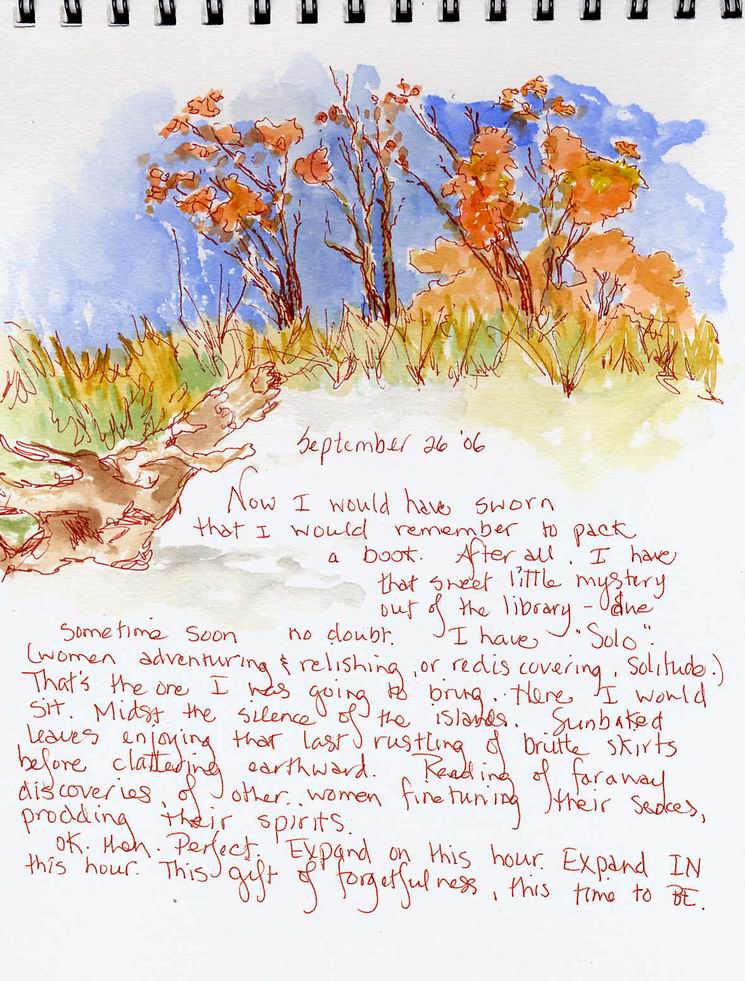 September 26 '06
Now I would have sworn
that I would remember to pack
a book. After all, I have
that sweet little mystery
out of the library - due
sometime soon no doubt. I have "Solo".
(women adventuring & relishing, or rediscovering, solitude.)
That's the one I was going to bring. Here I would
sit. Midst the silence of the islands. Sunbaked
leaves enjoying that last rustling of brittle skirts
before clattering earthward. Reading of faraway
discoveries, of other women finetuning their senses,
prodding their spirits.
OK then. Perfect. Expand on this hour. Expand IN
this hour. This gift of forgetfulness, this time to BE.